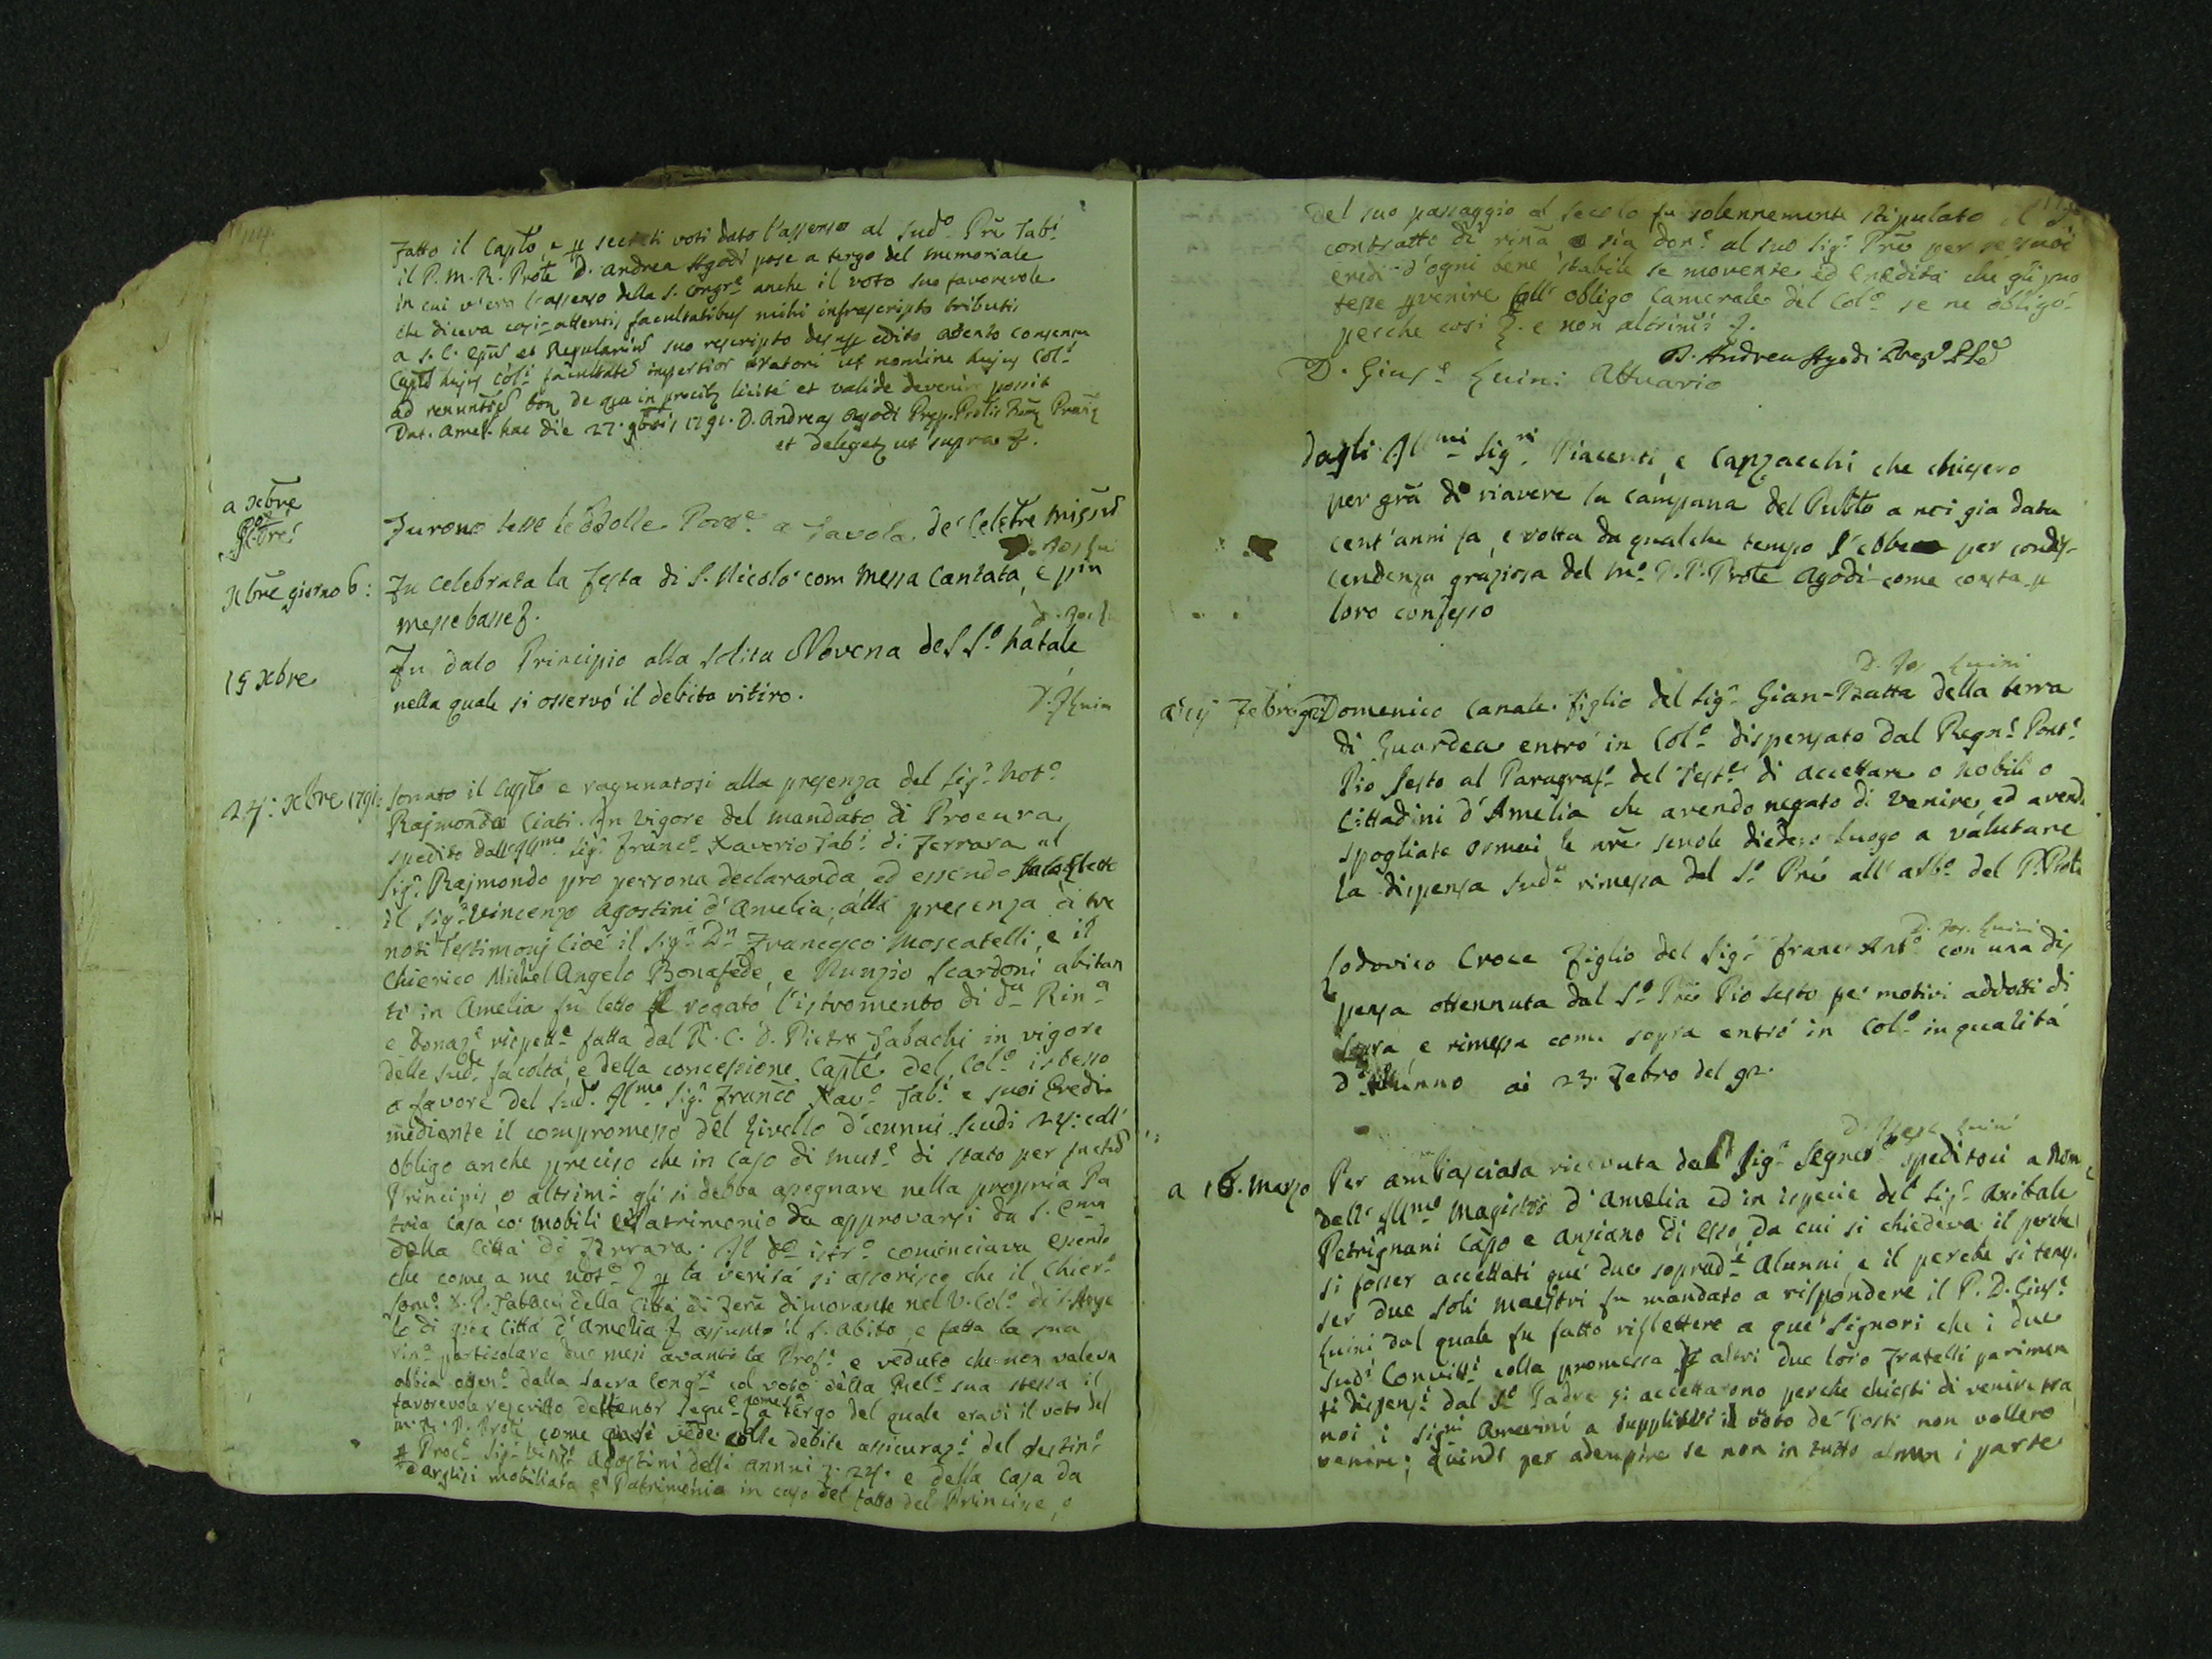 114.
Fatto il Caplo, e p secreti voti dato l'assenso al sudº Prè Fabi
il P. M. R. Prõte D. Andrea Agodi pose a tergo del memoriale
in cui v'era l'assenso della S. Congre anche il voto suo favorevole
che diceva cosi= attentis facultatibus mihi infrascripto tributis
a S. C. Epũ et Regulariũ suo rescripto edito attento consensu
Capti hujus Coli facultatẽ impertior Oratori ut nomine hujus Coli
ad renuntiẽ de qua in precib licitè et validè devenire possit
Dat. Amer. hac die 27. 9bris 1791. D. Andreas Agodi Prep. Prõlis
et delegat ut supra
a Xbre
Furono lesse le Bolle a Tavola de Celebre
Xbre giorno 6:
Fu celebrata la Festa di S. Nicolò com Messa Cantata, e più
messe basse
15 Xbre
Fu dato Principio alla solita Novena del Sº Natale
nella quale si osservò il debito ritiro.
24: Xbre 1791:
Sonato il Caplo e ragunatosi alla presenza del Sigr Notº
Rajmondo Ciati. In vigore del mandato di Procura
spedito dall'Illmo Sigr Francº Xaverio Fabi di Ferrara al
Sigr Rajmondo pro persona declaranda ed essendo
il Sigr Vincenzo Agostini d'Amelia, alla presenza di tre
noti Testimonj cioè il Sigr Dn Francesco Moscatelli, e il
Chierico Michel Angelo Bonafede, e Nunzio Scardoni abitan
ti in Amelia fu letto e rogato l'istromento di da Rina
e Donaze rispette fatta dal R. C. D. Pietro Fabachi in vigore
delle sude facoltà, e della concessione Caplè del Colº istesso
a favore del sudº Illmo Sigr Francº Xavº Fabi e suoi Eredi
mediante il compromesso del Livello d'annui scudi 24: coll'
obligo anche preciso che in caso di mute di stato per factũ
Principis o altrimi gli si debba assegnare nella propria Pa
tria Casa co' mobili e Patrimonio da approvarsi da S. Ema
della Città di Ferrara. Il dº istrº cominciava essendo
che come a me Notº p la verità si asserisce che il Chierº
D. P. Fabachi della Città di Ferã dimorante nel V. Colº di S. Ange
lo di questa Città d'Amelia assunto il S. abito, e fatta la sua
rina particolare due mesi avanti la Profe e veduto che non valeva
abbia ottenº dalla Sacra Congre col voto della sua stessa il
favorevole rescritto del tenor segue a tergo del quale eravi il voto del
come vede colle debite assicurazi del destini
Procre Sigr Agostini delli annui 24. e della Casa da
darglisi mobiliata, e Patrimonio in caso del fatto del Principe, o
del suo passaggio al secolo fu solennemente stipulato il
contratto di rinã o sia done al suo Sigr Prẽ per se suoi
eredi d'ogni bene stabile se movente ed Eredità che gli puo
tesse pvenire coll'obligo Camerale del Colº se ne obligò
perche così e non altrimti
D. Andrea Agodi
D. Giuse Luini Attuario
dagli Illmi Sigri Piacenti, e Carzacchi che chiesero
per grã di riavere la campana del Publo a noi già data
cent'anni fa, e rotta da qualche tempo l'ebbero per condis
cendenza graziosa del Mº P. Prõte Agodi come consta p
loro confesso
D. Jos Luini
Febro 92
Domenico Canale figlio del Sigr Gian-Batta della terra
di Guardea entrò in Colº dispensato dal Regne Ponte
Pio Sesto al Paragrafº del Teste di accettare o nobili o
Cittadini d'Amelia che avendo negato di venire, ed avendo
spogliate ormai le nre scuole diedero luogo a valutare
la dispensa suda rimessa dal Sº Prẽ all'arbº del P. Prõte
D. Jos. Luini
Lodovico Croce Figlio del Sigr Franc Antº con una dis
pensa ottennuta dal Sº Prẽ Pio Sesto pe' motivi addotti di
sopra, e rimessa come sopra entrò in Colº in qualità
d'Alunno ai 23. Febro del 92.
Luini
a 16. Marzo
Per ambasciata ricevuta dal Sigr Segreto speditoci a nome
dell'Illmo Magisto d'Amelia ed in ispecie del Sigr Anibale
Petrignani Capo e anziano di esso, da cui si chiedeva il perche
si fosser accettati que' due sopradi Alunni, e il perche si tenes
ser due soli maestri fu mandato a rispondere il P. D. Giuse
Luini dal quale fu fatto riflettere a que' Signori che i due
sudi Convitti colla promessa di altri due loro Fratelli parimen
ti dispensi dal Sº Padre si accettarono perche chiesti di venire tra
noi i Sigri Amerini a supplirvi il voto de' Posti non vollero
venire; quindi per adempire se non in tutto almen i parte